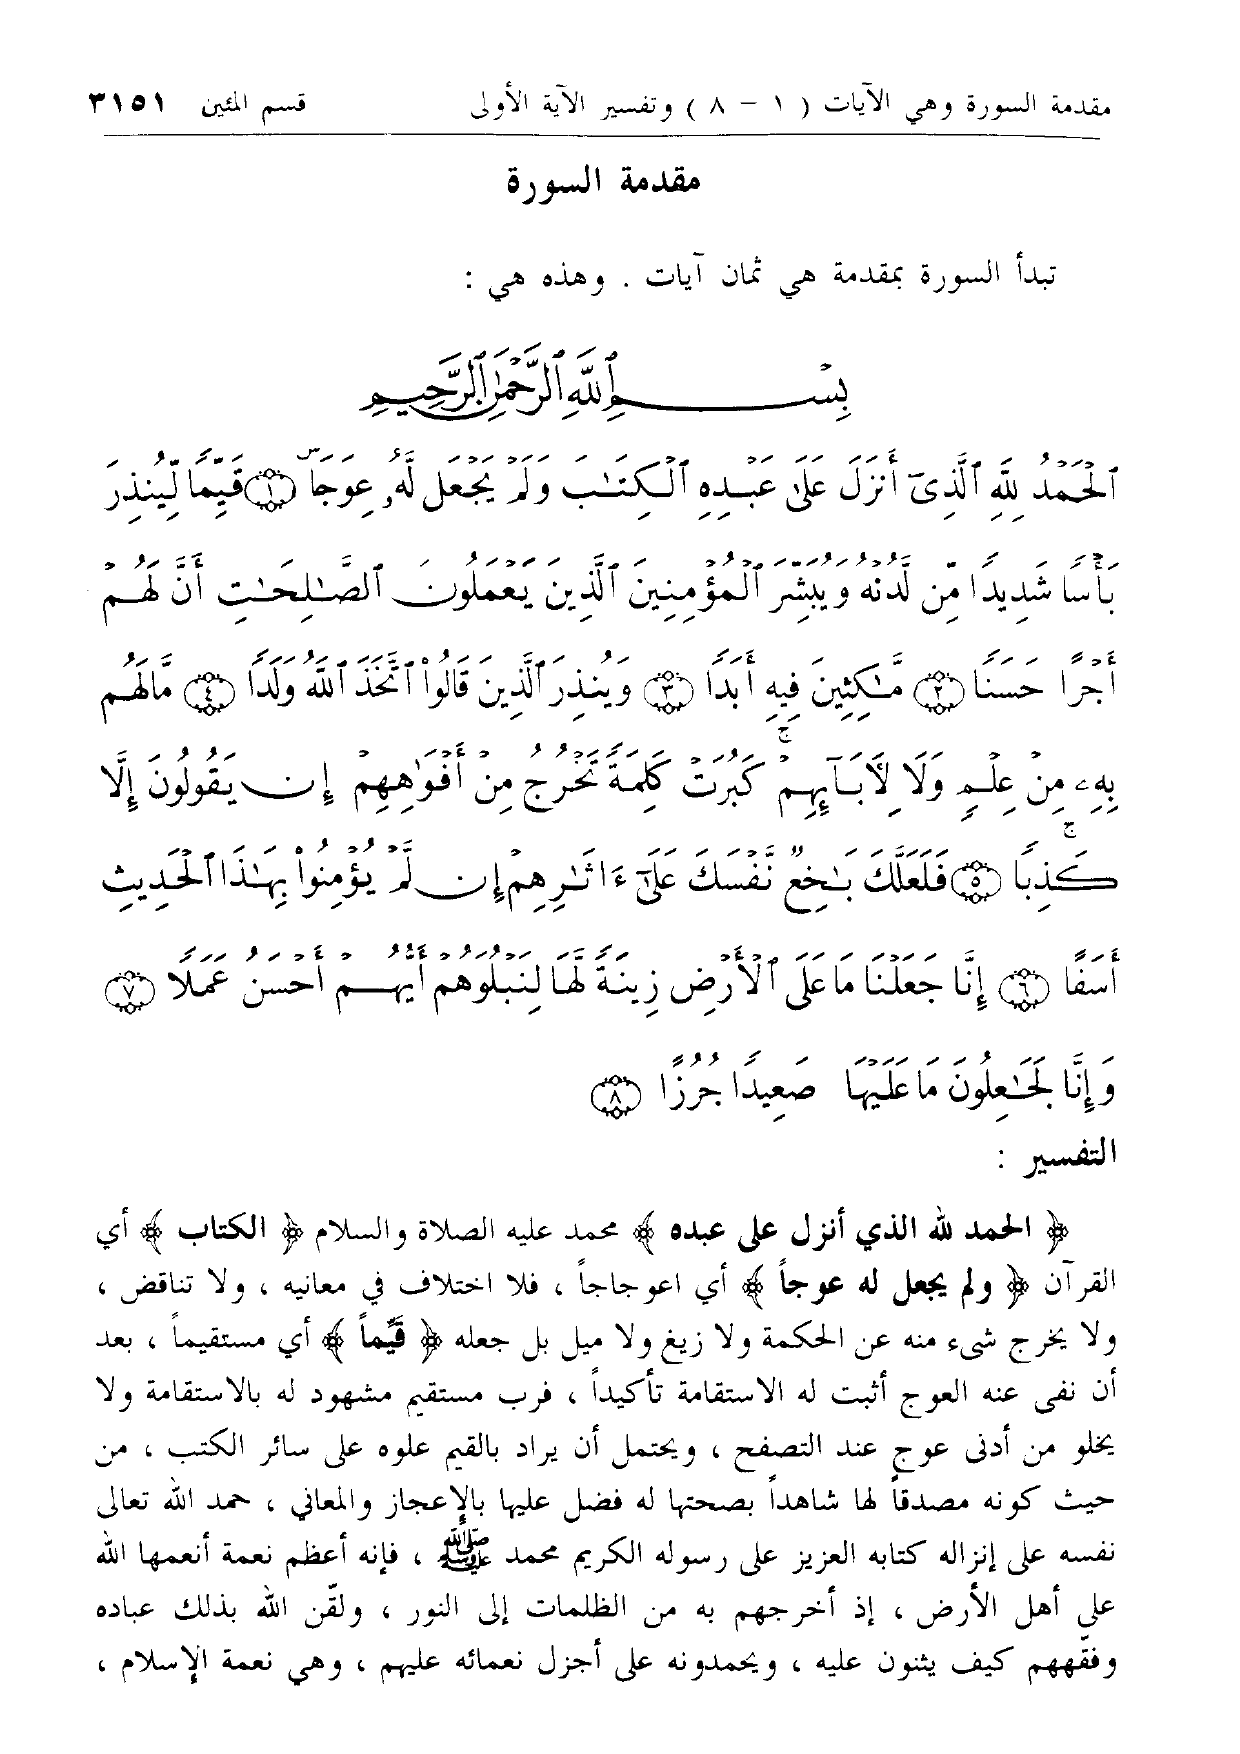 مقدمة السورة وهي الآيات ( ١ – ٨ ) وتفسير الآية الأولى قسم المئين ٣١٥١
مقدمة السورة
تبدأ السورة بمقدمة هي ثمان آيات . وهذه هي :
بِسْمِ ٱللَّهِ ٱلرَّحْمَٰنِ ٱلرَّحِيمِ
ٱلْحَمْدُ لِلَّهِ ٱلَّذِىٓ أَنزَلَ عَلَىٰ عَبْدِهِ ٱلْكِتَٰبَ وَلَمْ يَجْعَل لَّهُۥ عِوَجَاۜ ۝١ قَيِّمًا لِّيُنذِرَ
بَأْسًا شَدِيدًا مِّن لَّدُنْهُ وَيُبَشِّرَ ٱلْمُؤْمِنِينَ ٱلَّذِينَ يَعْمَلُونَ ٱلصَّٰلِحَٰتِ أَنَّ لَهُمْ
أَجْرًا حَسَنًا ۝٢ مَّٰكِثِينَ فِيهِ أَبَدًا ۝٣ وَيُنذِرَ ٱلَّذِينَ قَالُوا۟ ٱتَّخَذَ ٱللَّهُ وَلَدًا ۝٤ مَّا لَهُم
بِهِۦ مِنْ عِلْمٍ وَلَا لِأَبَآئِهِمْ ۚ كَبُرَتْ كَلِمَةً تَخْرُجُ مِنْ أَفْوَٰهِهِمْ إِن يَقُولُونَ إِلَّا
كَذِبًا ۚ ۝٥ فَلَعَلَّكَ بَٰخِعٌ نَّفْسَكَ عَلَىٰٓ ءَاثَٰرِهِمْ إِن لَّمْ يُؤْمِنُوا۟ بِهَٰذَا ٱلْحَدِيثِ
أَسَفًا ۝٦ إِنَّا جَعَلْنَا مَا عَلَى ٱلْأَرْضِ زِينَةً لَّهَا لِنَبْلُوَهُمْ أَيُّهُمْ أَحْسَنُ عَمَلًا ۝٧
وَإِنَّا لَجَٰعِلُونَ مَا عَلَيْهَا صَعِيدًا جُرُزًا ۝٨
التفسير :
﴿ الحمد لله الذي أنزل على عبده ﴾ محمد عليه الصلاة والسلام ﴿ الكتاب ﴾ أي
القرآن ﴿ ولم يجعل له عوجاً ﴾ أي اعوجاجاً ، فلا اختلاف في معانيه ، ولا تناقض ،
ولا يخرج شيء منه عن الحكمة ولا زيغ ولا ميل بل جعله ﴿ قيِّماً ﴾ أي مستقيماً ، بعد
أن نفى عنه العوج أثبت له الاستقامة تأكيداً ، فرب مستقيم مشهود له بالاستقامة ولا
يخلو من أدنى عوج عند التصفح ، ويحتمل أن يراد بالقيم علوه على سائر الكتب ، من
حيث كونه مصدقاً لها شاهداً بصحتها له فضل عليها بالإعجاز والمعاني ، حمد الله تعالى
نفسه على إنزاله كتابه العزيز على رسوله الكريم محمد ﷺ ، فإنه أعظم نعمة أنعمها الله
على أهل الأرض ، إذ أخرجهم به من الظلمات إلى النور ، ولقّن الله بذلك عباده
وفقّههم كيف يثنون عليه ، ويحمدونه على أجزل نعمائه عليهم ، وهي نعمة الإسلام ،